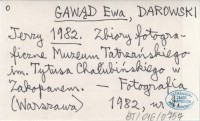 0
GAWĄD Ewa, DAROWSKI
Jerzy 1982. Zbiory fotogra-
ficzne Muzeum Tatrzańskiego
im. Tytusa Chałubińskiego w
Zakopanem. — Fotografia
(Warszawa) 1982, nr